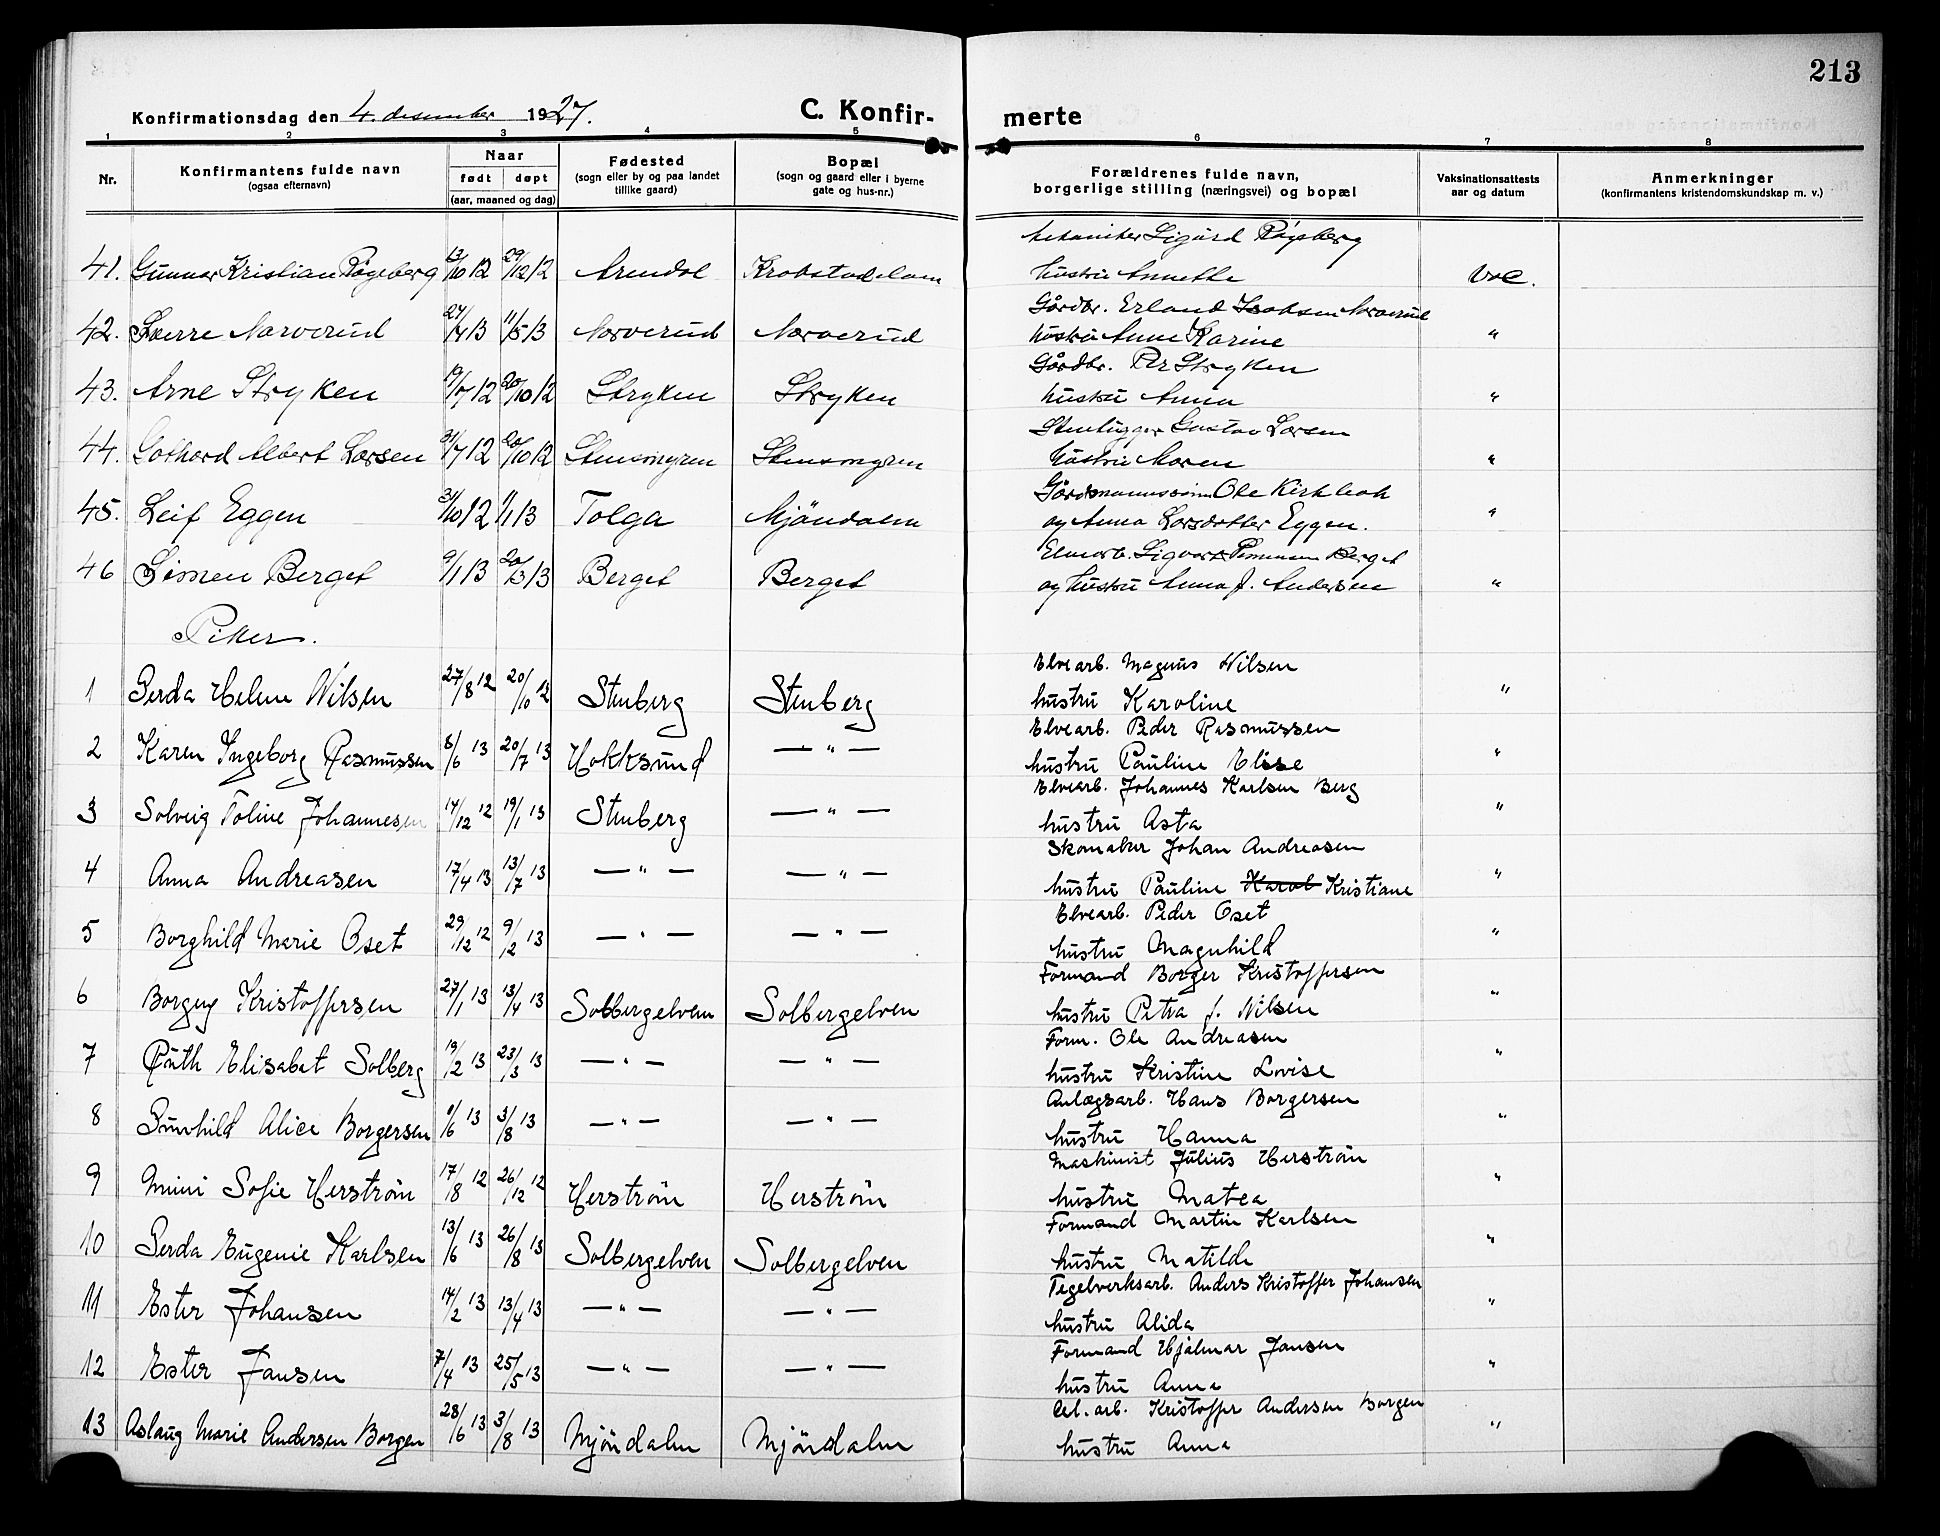 213
Konfirmationsdag den 4. desember 1927. C. Konfirmerte
1 2 3 4 5 6 7 8
Nr. Konfirmantens fulde navn (ogsaa efternavn) Naar født døpt (aar, maaned og dag) Fødested (sogn eller by og paa landet tillike gaard) Bopæl (sogn og gaard eller i byerne gate og hus-nr.) Forældrenes fulde navn, borgerlige stilling (næringsvei) og bopæl Vaksinationsattests aar og datum Anmerkninger (konfirmantens kristendomskundskap m. v.)
Sigurd Røgeberg
41. Gunnar Kristian Røgeberg 13/10 12 29/12 12 Arendal Krokstadelven hustru Annette Vac.
Gårdbr. Erland Narverud
42. Sverre Narverud 27/4 13 11/5 13 Narverud Narverud hustru Anne Karine "
Gårdbr. Per Stryken
43. Arne Stryken 9/7 12 20/10 12 Stryken Stryken hustru Anna "
Stenhugger Gustav Larsen
44. Gothard Albert Larsen 31/7 12 20/10 12 Stensmyren Stensmyren hustru Maren "
Gårdmannssønn Ole Kirkbak
45. Leif Eggen 31/10 12 1/1 13 Tolga Mjöndalen og Anna Larsdatter Eggen. "
Elvearb. Sigvart Simensen Berget
46 Simen Berget 9/1 13 20/3 13 Berget Berget og hustru Anna f. Andersen "
Piker.
Elvearb. Magnus Nilsen
1 Gerda Helene Nilsen 27/8 12 20/10 12 Stenberg Stenberg hustru Karoline "
Elvearb. Peder Rasmussen
2 Karen Ingeborg Rasmussen 8/6 13 20/7 13 Hokksund — " — hustru Pauline Elise "
Elvearb. Johannes Karlsen Berg
3 Solveig Toline Johannesen 14/12 12 19/1 13 Stenberg — " — hustru Asta "
Skomaker Johan Andreasen
4 Anna Andreasen 17/4 13 13/7 13 — " — — " — hustru Pauline Karol Kristiane "
Elvearb. Peder Oset
5 Borghild Marie Oset 29/12 12 9/2 13 — " — — " — hustru Magnhild "
Formand Borger Kristoffersen
6 Borgny Kristoffersen 27/1 13 13/4 13 Solbergelven Solbergelven hustru Petra f. Nilsen "
Form. Ole Andreasen
7 Ruth Elisabet Solberg 19/2 13 23/3 13 — " — — " — hustru Kristine Lovise "
Anlægsarb. Hans Borgersen
8 Gunhild Alice Borgersen 9/6 13 3/8 13 — " — — " — hustru Hanna "
Maskinist Julius Herstrøm
9 Mimi Sofie Herstrøm 17/8 12 26/12 12 Herstrøm Herstrøm hustru Matea "
Formand Martin Karlsen
10 Gerda Eugenie Karlsen 13/6 13 26/8 13 Solbergelven Solbergelven hustru Matilde "
Tegelverksarb. Anders Kristoffer Johansen
11 Ester Johansen 14/2 13 13/4 13 — " — — " — hustru Alida "
Formand Hjalmar Jansen
12 Ester Jansen 7/4 13 25/5 13 — " — — " — hustru Anna "
Cel. arb. Kristoffer Andersen Borgen
13 Aslaug Marie Andersen Borgen 28/6 13 3/8 13 Mjöndalen Mjöndalen hustru Anna "